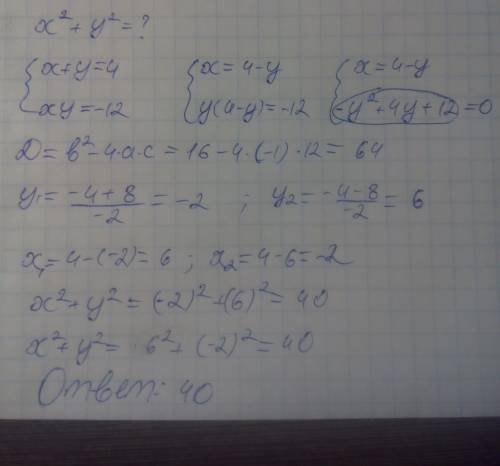 x² + y² = ?
{ x+y=4 { x=4-y { x=4-y
{ xy=-12 { y(4-y)=-12 { -y²+4y+12=0
D=b²-4·a·c=16-4·(-1)·12=64
y₁=(-4+8)/(-2)=-2 ; y₂=(-4-8)/(-2)=6
x₁=4-(-2)=6 ; x₂=4-6=-2
x²+y²=(-2)²+(6)²=40
x²+y²=6²+(-2)²=40
Ответ: 40